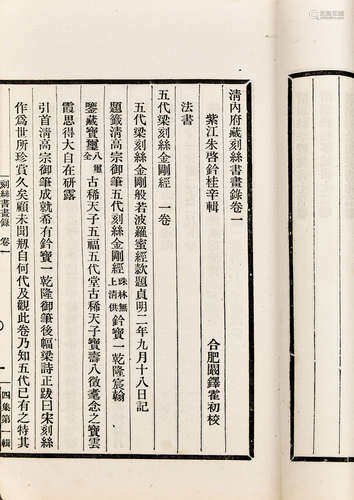 清內府藏刻絲書畫錄卷一
紫江朱啓鈐桂辛輯
合肥闞鐸霍初校
法書
五代梁刻絲金剛經 一卷
五代梁刻絲金剛般若波羅蜜經款題貞明二年九月十八日記
題籤清高宗御筆五代刻絲金剛經珠林無上清供鈐寶一乾隆宸翰
鑒藏寶璽八璽全古稀天子五福五代堂古稀天子寶壽八徵耄念之寶雲
霞思得大自在研露
引首清高宗御筆成熟希有鈐寶一乾隆御筆後幅梁詩正跋曰宋刻絲
作爲世所珍賞久矣顧未聞觀自何代及觀此卷乃知五代已有之特其
刻絲書畫錄 卷一
一
四集第一輯